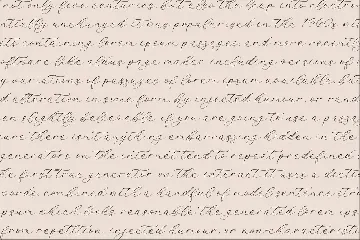 not only five centuries, but also the leap into electronic
entially unchanged. It was popularised in the 1960s
ets containing lorem ipsum passages, and more recently
software like aldus pagemaker including versions of
many variations of passages of lorem ipsum available, but
d alteration in some form, by injected humour, or rand
en slightly believable. if you are going to use a passage
sure there isn't anything embarrassing hidden in the
generators on the internet tend to repeat predefined
the first true generator on the internet. it uses a dictio
words, combined with a handful of model sentence struc
ipsum which looks reasonable. the generated lorem ips
from repetition, injected humour, or non-characteristi